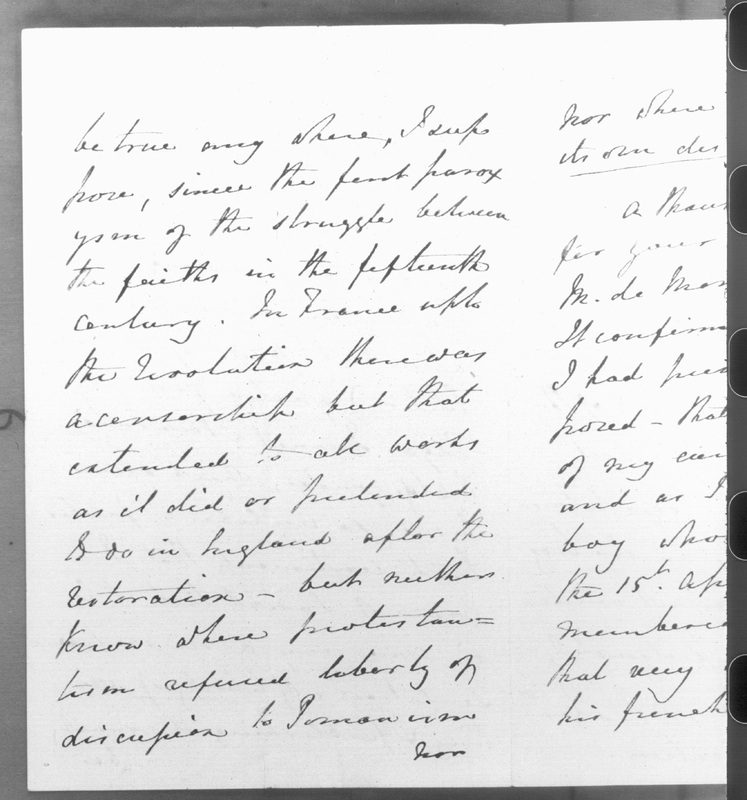 be true any where, I sup
pose, since the first parox
ysm of the struggle between
the faiths in the fifteenth
century. In France upto
the Revolution there was
a censorship but that
extended to all works
as it did or pretended
to do in England after the
restoration – but neither
know where protestan=
tism refused liberty of
discussion to Romanism
nor
nor where
its own dis
a thous
for your
M. de Mon
It confirm
I had
posed – that
of my
and as I
boy who
the 15th. Ap
membered
that very
his french